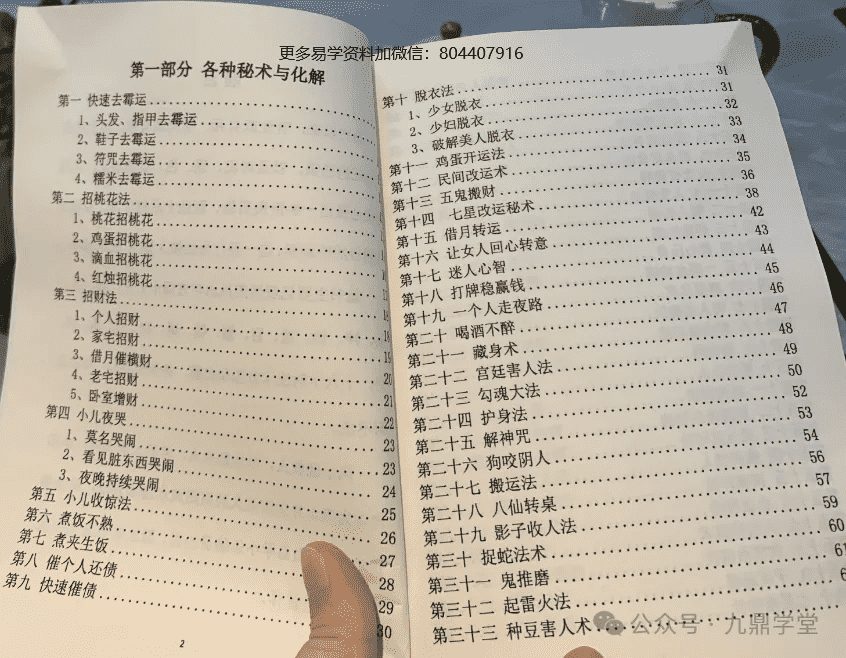 更多易学资料加微信：804407916
第一部分 各种秘术与化解
第一 快速去霉运
1、头发、指甲去霉运
2、鞋子去霉运
3、符咒去霉运
4、糯米去霉运
第二 招桃花法
1、桃花招桃花
2、鸡蛋招桃花
3、滴血招桃花
4、红烛招桃花
第三 招财法
1、个人招财
2、家宅招财
3、借月催横财
4、老宅招财
5、卧室增财
第四 小儿夜哭
1、莫名哭闹
2、看见脏东西哭闹
3、夜晚持续哭闹
第五 小儿收惊法
第六 煮饭不熟
第七 煮夹生饭
第八 催个人还债
第九 快速催债
18
19
19
20
21
22
23
23
24
25
26
27
28
29
30
2
第十 脱衣法 31
1、少女脱衣 31
2、少妇脱衣 32
3、破解美人脱衣 33
第十一 鸡蛋开运法 34
第十二 民间改运术 35
第十三 五鬼搬财 36
第十四 七星改运秘术 38
第十五 借月转运 42
第十六 让女人回心转意 43
第十七 迷人心智 44
第十八 打牌稳赢钱 45
第十九 一个人走夜路 46
第二十 喝酒不醉 47
第二十一 藏身术 48
第二十二 宫廷害人法 49
第二十三 勾魂大法 50
第二十四 护身法 52
第二十五 解神咒 53
第二十六 狗咬阴人 54
第二十七 搬运法 56
第二十八 八仙转桌 57
第二十九 影子收人法 59
第三十 捉蛇法术 60
第三十一 鬼推磨 61
第三十二 起雷火法
第三十三 种豆害人术
公众号·九鼎学堂